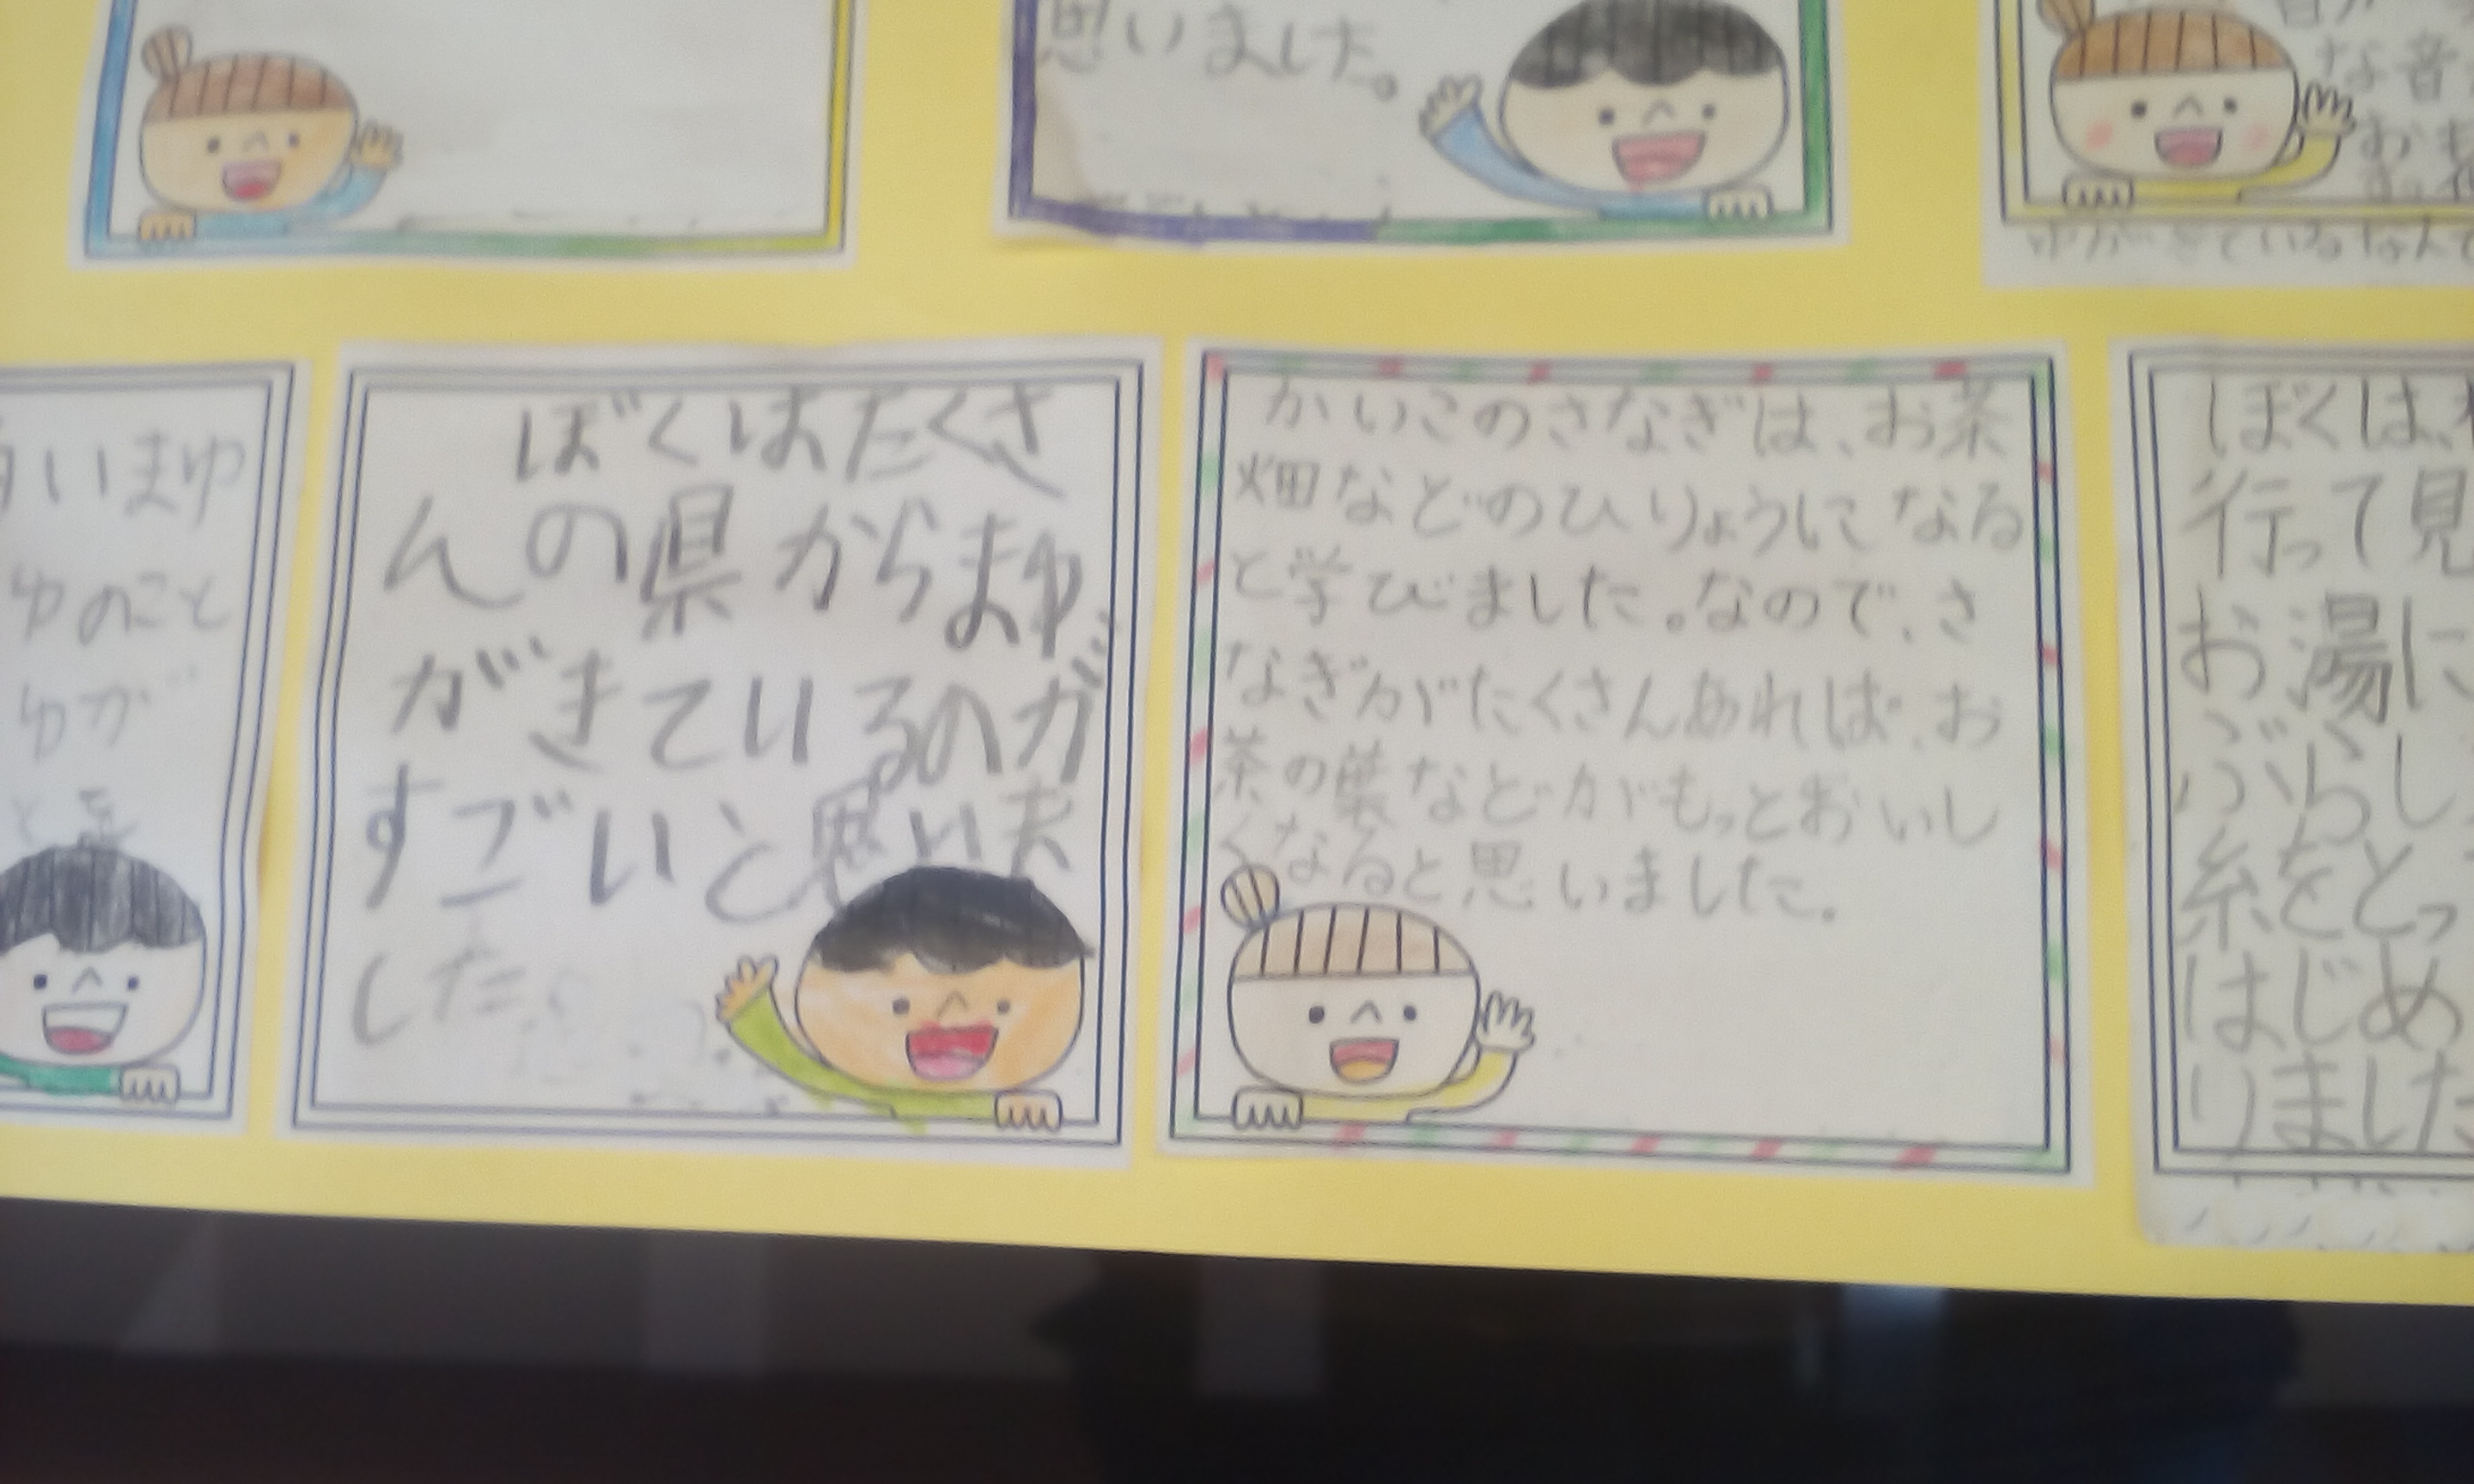 思いました。
な音
ゆがきているなんて
いまゆ
ゆのこと
ゆが
ぼくはたくさ
んの県からまゆ
がきているのが
すごいと思いま
した。
かいこのさなぎは、お茶
畑などのひりょうになる
と学びました。なので、さ
なぎがたくさんあれば、お
茶の葉などがもっとおいし
くなると思いました。
ぼくは、
行って見
お湯に
ぶらし
糸をとっ
はじめ
りました